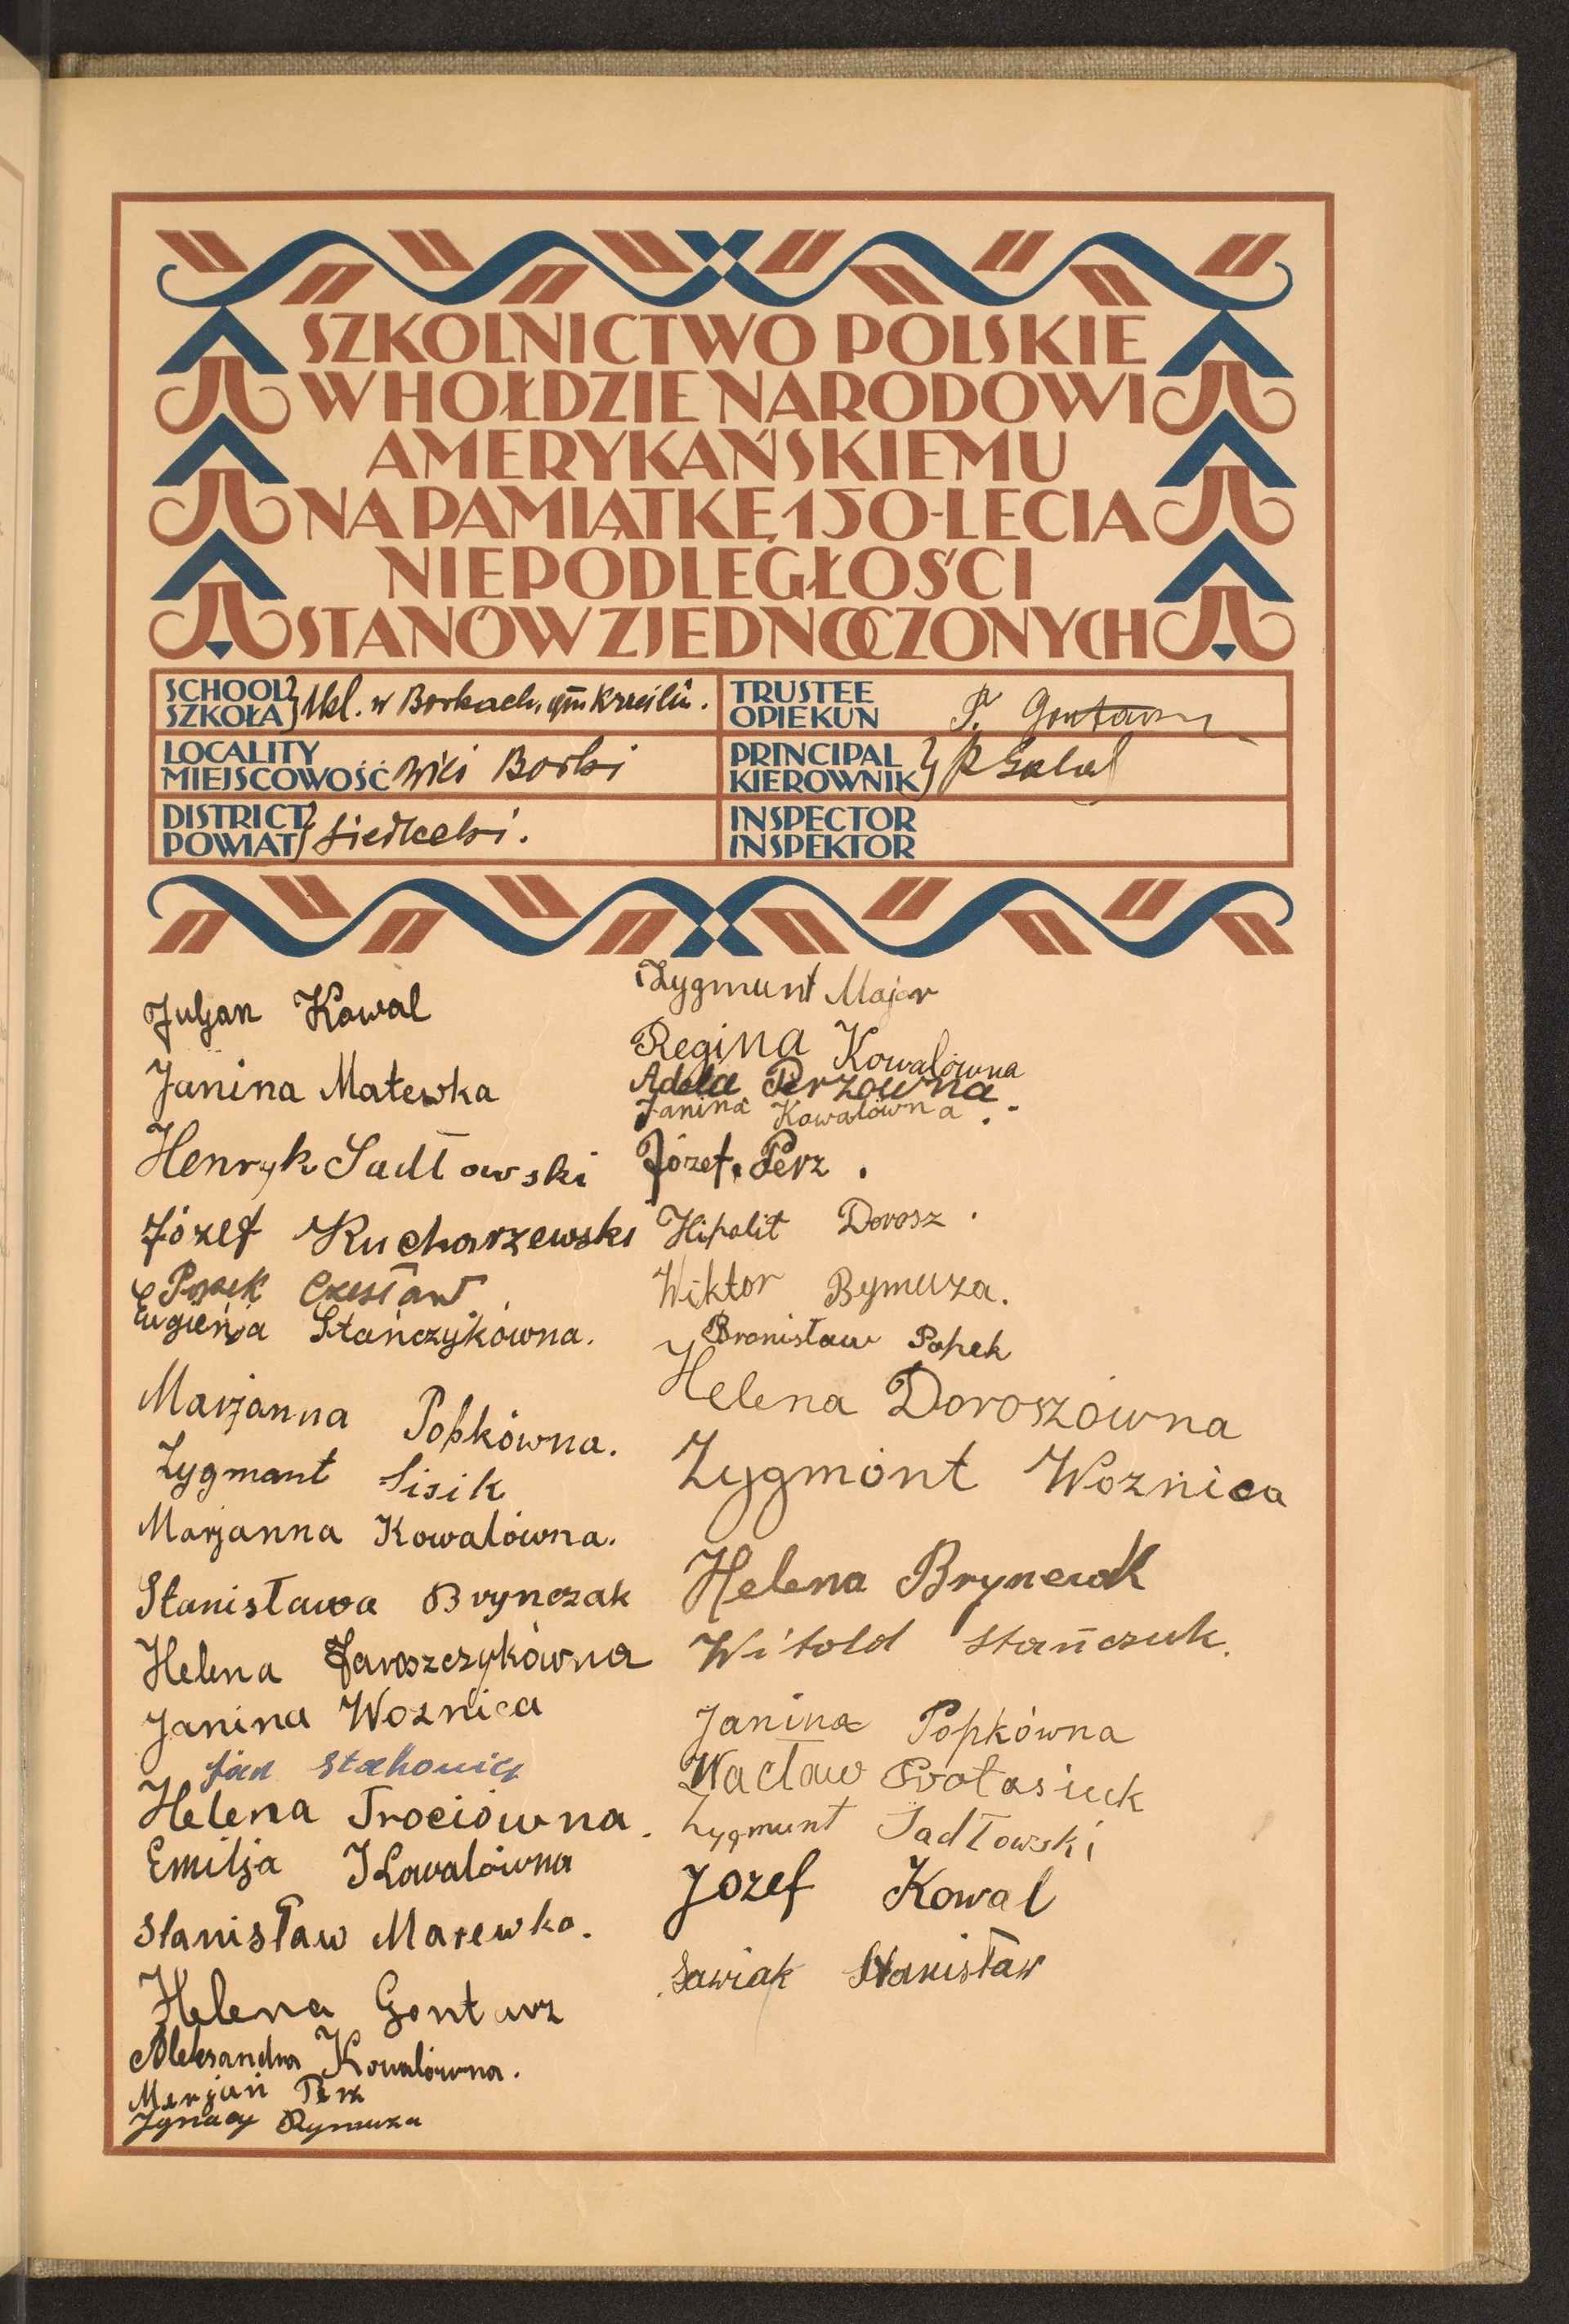 SZKOLNICTWO POLSKIE
W HOŁDZIE NARODOWI
AMERYKAŃSKIEMU
NA PAMIĄTKĘ 150-LECIA
NIEPODLEGŁOŚCI
STANÓW ZJEDNOCZONYCH
SCHOOL
SZKOŁA
w Borkach,
LOCALITY
MIEJSCOWOŚĆ
Borki
DISTRICT
POWIAT
Siedlecki.
TRUSTEE
OPIEKUN
PRINCIPAL
KIEROWNIK
INSPECTOR
INSPEKTOR
Juljan Kowal
Janina Matewka
Henryk Sadłowski
Józef Kucharzewski
Popek Czesław
Eugienja Stańczykówna.
Marjanna Popkówna.
Zygmunt Sisik
Marjanna Kowalówna.
Stanisława Brynczak
Helena Jaroszczykówna
Janina Woznica
Jan
Helena Trociówna.
Emilja Kowalówna
Stanisław Matewka.
Helena Gontarz
Aleksandra Kowalówna.
Marjan Perz
Ignacy Rymuza
Zygmunt Major
Regina Kowalówna
Adela Perzowna
Janina Kowalówna.
Józef. Perz.
Hipolit Dorosz.
Wiktor Rymuza.
Bronisław Popek
Helena Doroszówna
Zygmónt Woznica
Helena
Witold Stańczuk.
Janina Popkówna
Wacław Protasiuk
Zygmunt Sadłowski
Jozef Kowal
Sawiak Stanisław